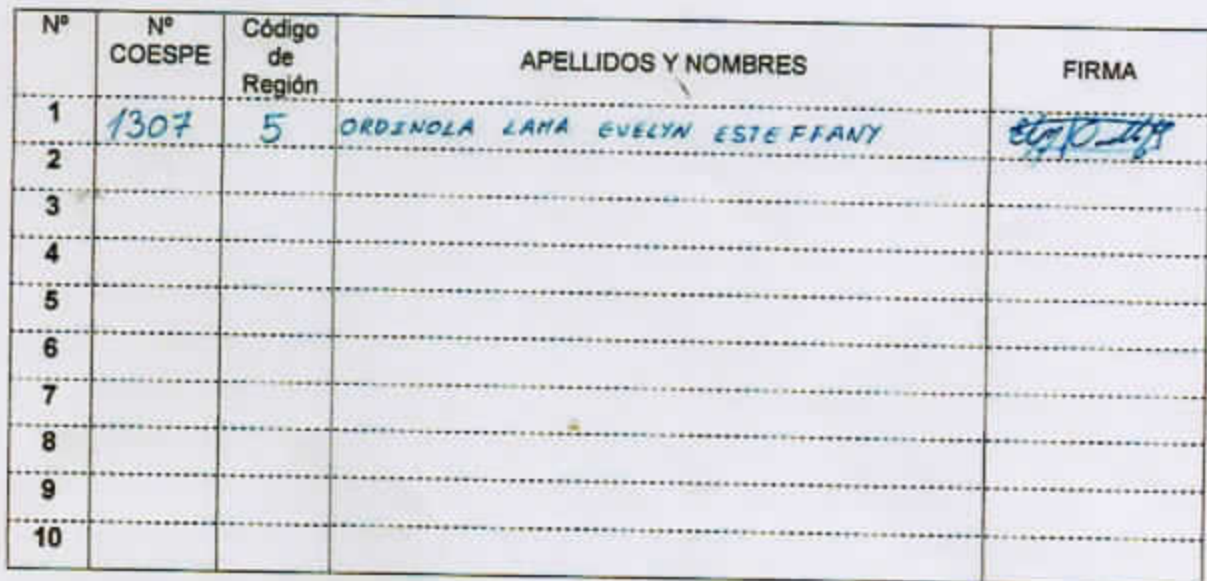 Nº Nº COESPE Código de Región APELLIDOS Y NOMBRES FIRMA
1 1307 5 ORDINOLA LAMA EVELYN ESTEFFANY
2
3
4
5
6
7
8
9
10